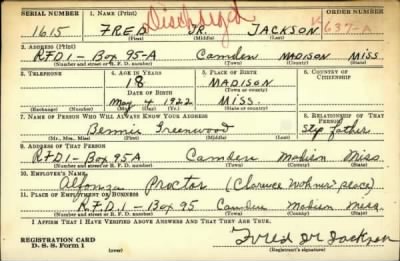 SERIAL NUMBER 1. NAME (Print) ORDER NUMBER
Discharged
1615 FRED JR. JACKSON 637-A
(First) (Middle) (Last)
2. ADDRESS (Print)
RFD1- Box 95-A Camden MADISON MISS.
(Number and street or R. F. D. number) (Town) (County) (State)
3. TELEPHONE 4. AGE IN YEARS 5. PLACE OF BIRTH 6. COUNTRY OF CITIZENSHIP
18 MADISON
DATE OF BIRTH (Town or county)
May 4 1922 MISS.
(Exchange) (Number) (Mo.) (Day) (Yr.) (State or country)
7. NAME OF PERSON WHO WILL ALWAYS KNOW YOUR ADDRESS 8. RELATIONSHIP OF THAT PERSON
Bennie Greenwood Step father
(Mr., Mrs., Miss) (First) (Middle) (Last)
9. ADDRESS OF THAT PERSON
RFD1- Box 95A Camden Madison Miss
(Number and street or R. F. D. number) (Town) (County) (State)
10. EMPLOYER'S NAME
Alfonza Proctor (Clarence place)
11. PLACE OF EMPLOYMENT OR BUSINESS
R.F.D.1- Box 95 Camden Madison Miss.
(Number and street or R. F. D. number) (Town) (County) (State)
I AFFIRM THAT I HAVE VERIFIED ABOVE ANSWERS AND THAT THEY ARE TRUE.
REGISTRATION CARD
D. S. S. Form 1 (over) Fred Jr Jackson
(Registrant's signature)